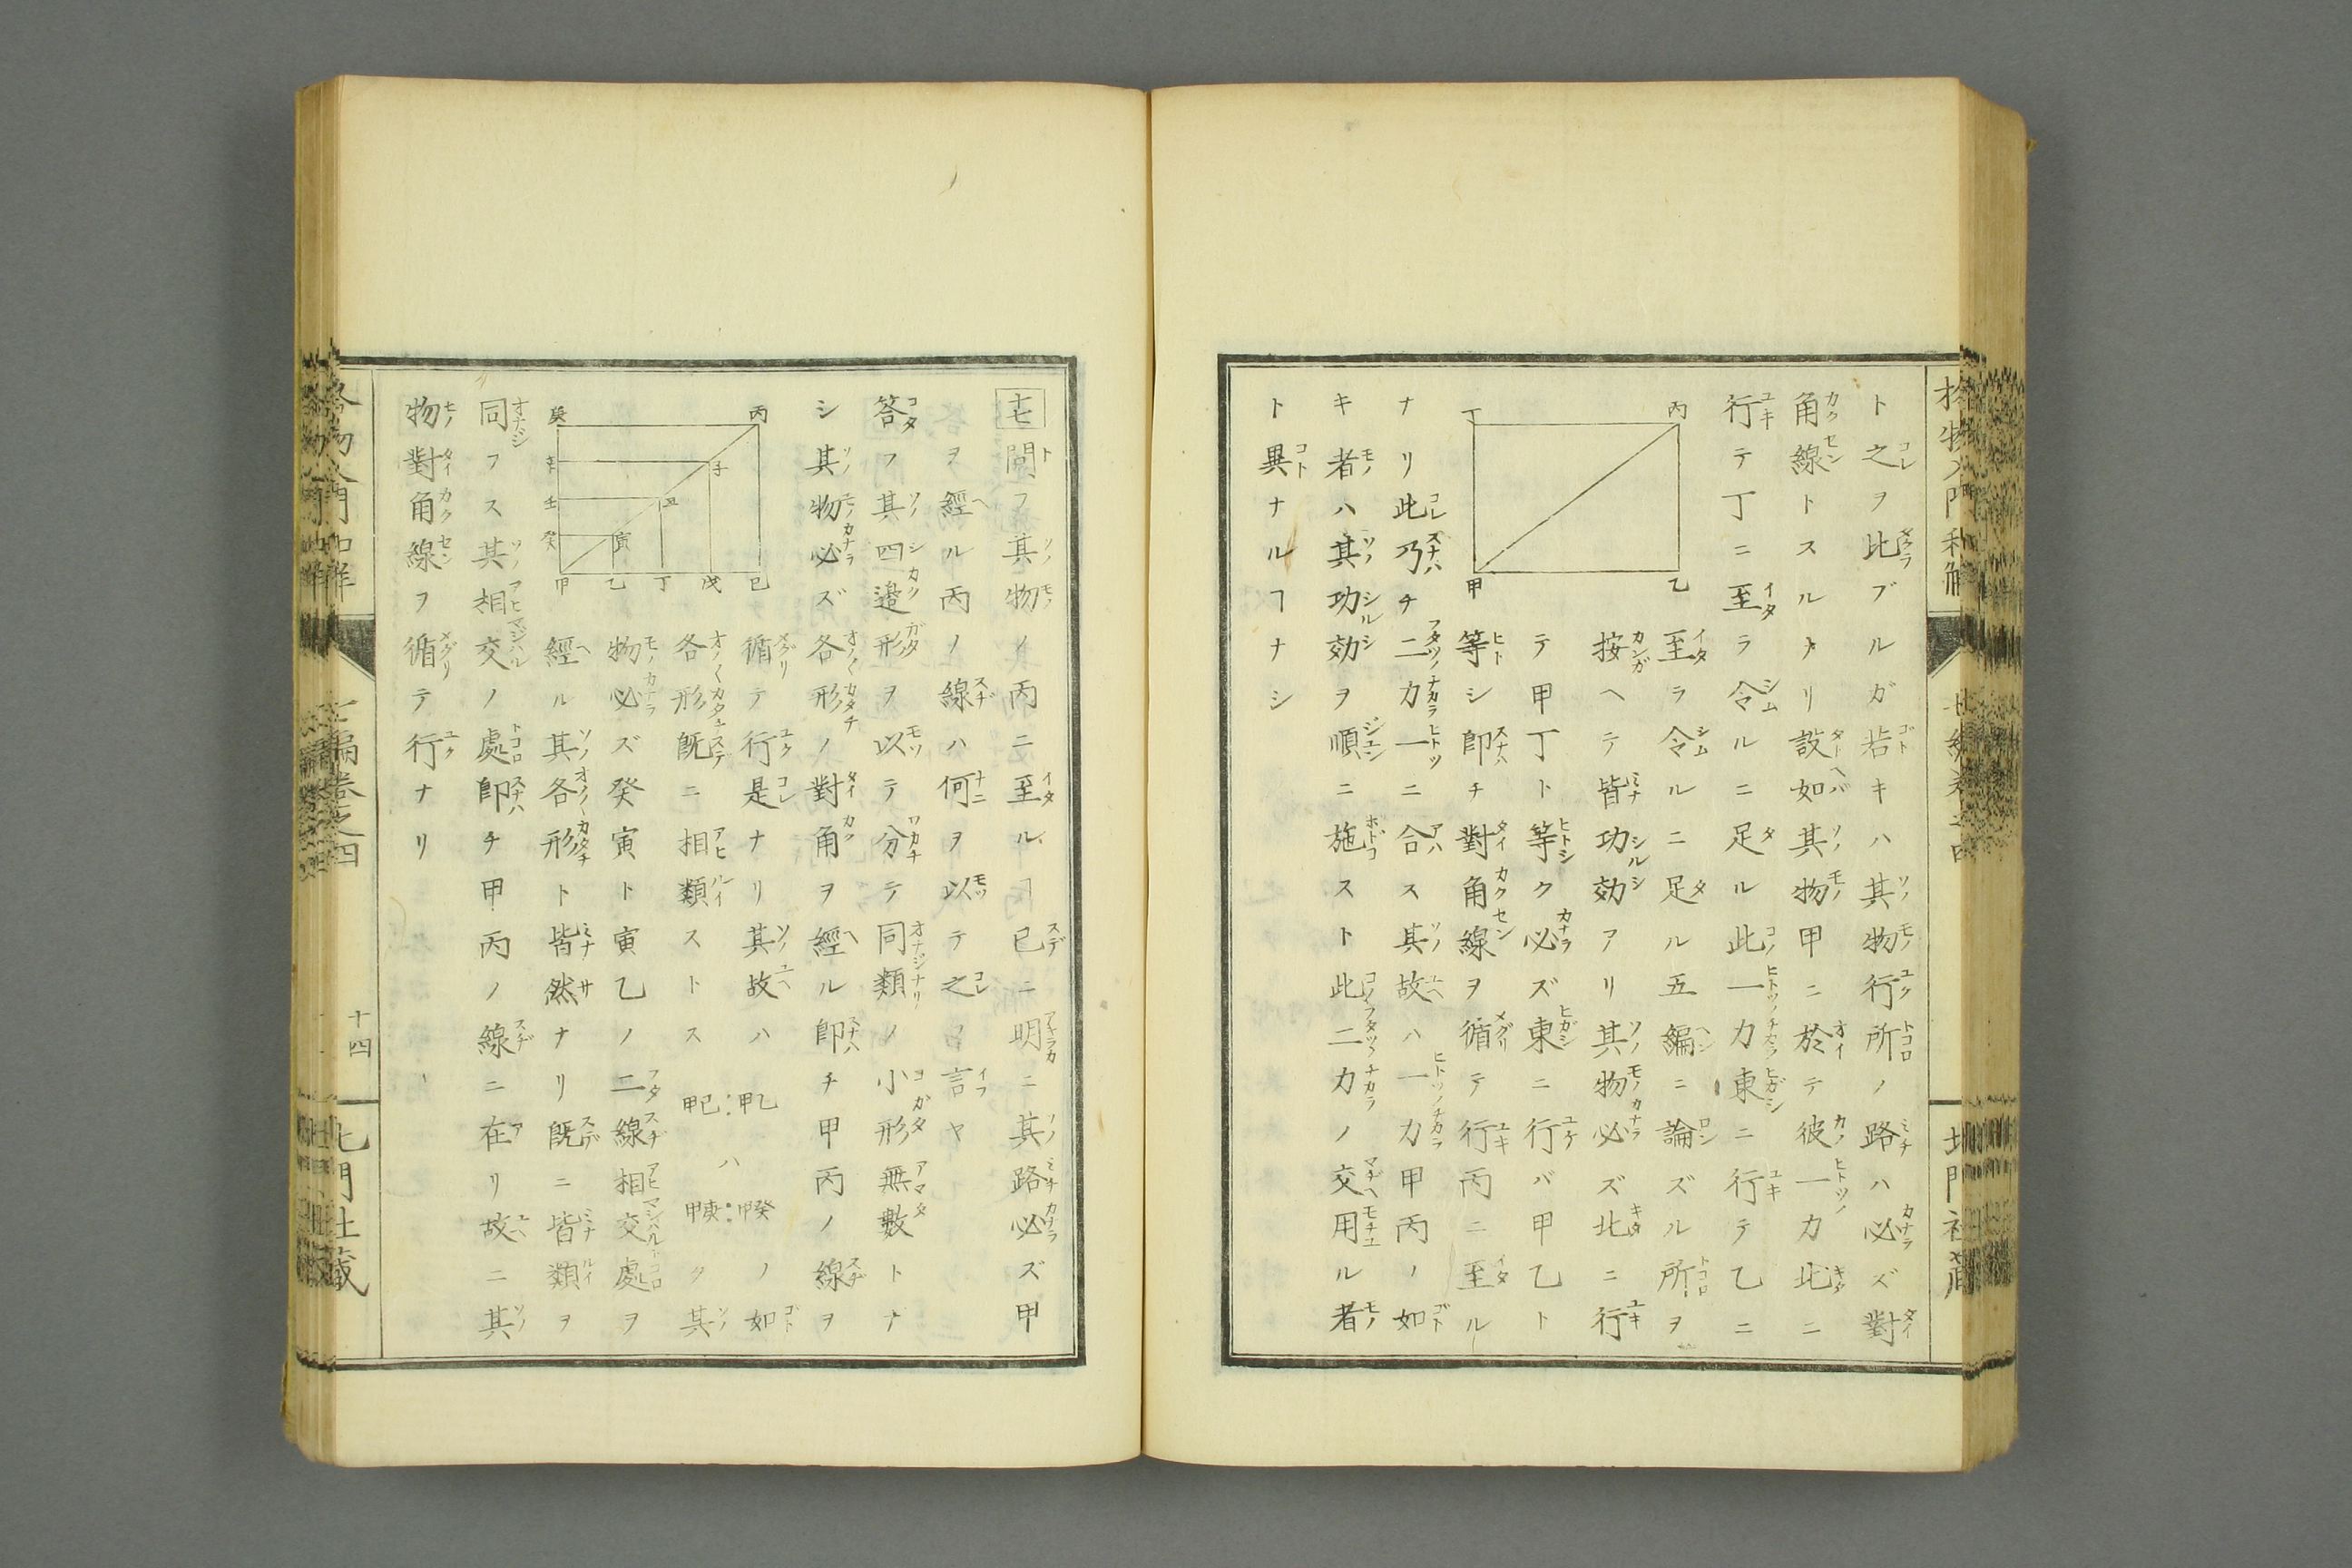 ト之ヲ比ブルガ若キハ其物行所ノ路ハ必ズ對
角線トスルナリ設如其物甲ニ於テ彼一力北ニ
行テ丁ニ至ラ令ルニ足ル此一力東ニ行テ乙ニ
至ラ令ルニ足ル五編ニ論ズル所ヲ
按ヘテ皆功効アリ其物必ズ北ニ行
テ甲丁ト等ク必ズ東ニ行バ甲乙ト
等シ卽チ對角線ヲ循テ行丙ニ至ル
丙
丁
乙
甲
ナリ此乃チ二力一ニ合ス其故ハ一力甲丙ノ如
キ者ハ其功効ヲ順ニ施スト此二力ノ交用ル者
ト異ナルヿナシ
十七 問フ其物ノ丙ニ至ル已ニ明ニ其路必ズ甲
ヲ經ル丙ノ線ハ何ヲ以テ之ヲ言ヤ
答フ其四邉形ヲ以テ分テ同類ノ小形無數トナ
シ其物必ズ各形ノ對角ヲ經ル卽チ甲丙ノ線ヲ
循テ行是ナリ其故ハ 甲乙:甲己 ハ 甲癸:甲庚 ノ如
ク其各形旣ニ相類ストス
物必ズ癸寅ト寅乙ノ二線相交處ヲ
經ル其各形ト皆然ナリ旣ニ皆類ヲ
丙
癸
子
辛
丑
壬
寅
癸
甲
乙
丁
戊
己
同フス其相交ノ處卽チ甲丙ノ線ニ在リ故ニ其
物對角線ヲ循テ行ナリ
十四